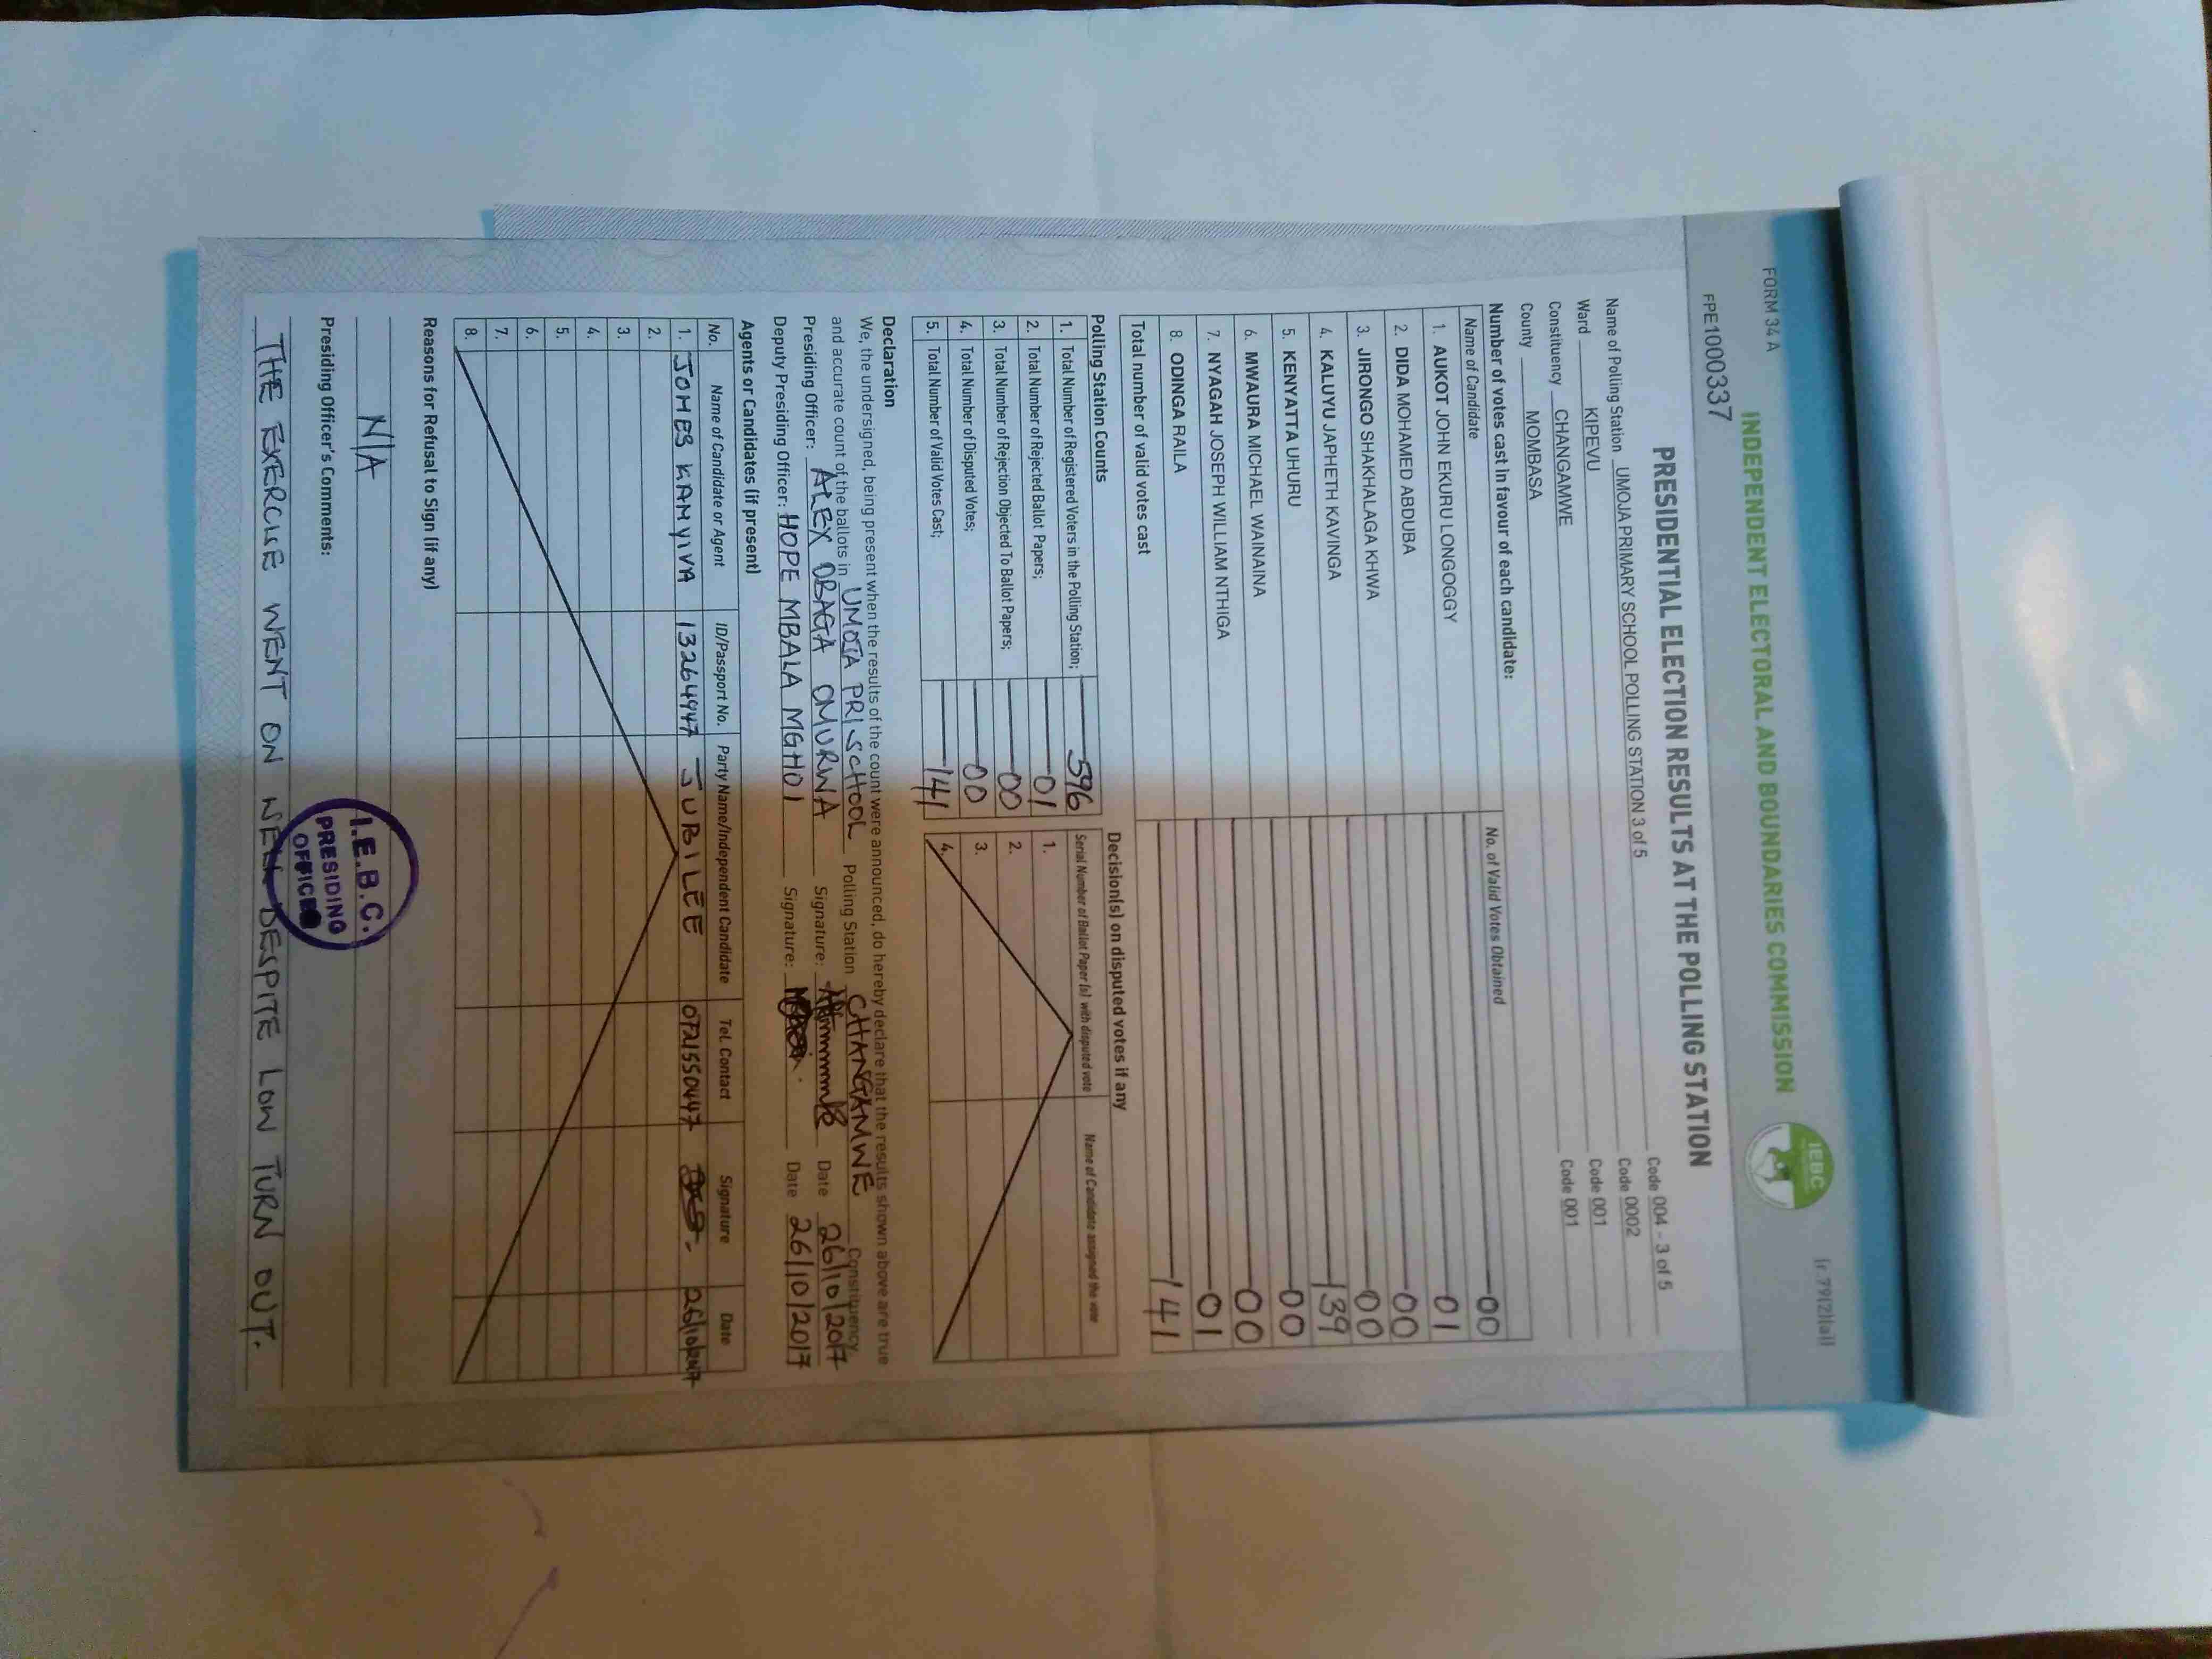 FORM 34 A
(r.79(2)(a))
INDEPENDENT ELECTORAL AND BOUNDARIES COMMISSION
IEBC
FPE1000337
PRESIDENTIAL ELECTION RESULTS AT THE POLLING STATION
Name of Polling Station UMOJA PRIMARY SCHOOL POLLING STATION 3 of 5 Code 004 - 3 of 5
Ward KIPEVU Code 0002
Constituency CHANGAMWE Code 001
County MOMBASA Code 001
Number of votes cast in favour of each candidate:
Name of Candidate No. of Valid Votes Obtained
1. AUKOT JOHN EKURU LONGOGGY 00
2. DIDA MOHAMED ABDUBA 01
3. JIRONGO SHAKHALAGA KHWA 00
4. KALUYU JAPHETH KAVINGA 00
5. KENYATTA UHURU 139
6. MWAURA MICHAEL WAINAINA 00
7. NYAGAH JOSEPH WILLIAM NTHIGA 00
8. ODINGA RAILA 01
Total number of valid votes cast 141
Polling Station Counts
1. Total Number of Registered Voters in the Polling Station; 596
2. Total Number of Rejected Ballot Papers; 01
3. Total Number of Rejection Objected To Ballot Papers; 00
4. Total Number of Disputed Votes; 00
5. Total Number of Valid Votes Cast; 141
Decision(s) on disputed votes if any
Serial Number of Ballot Paper (s) with disputed vote Name of Candidate assigned the vote
1.
2.
3.
4.
Declaration
We, the undersigned, being present when the results of the count were announced, do hereby declare that the results shown above are true
and accurate count of the ballots in UMOJA PRI SCHOOL Polling Station CHANGAMWE Constituency
Presiding Officer: ALEX OBAGA OMURWA Signature: Date 26/10/2017
Deputy Presiding Officer: HOPE MBALA MGHOI Signature: Date 26/10/2017
Agents or Candidates (if present)
No. Name of Candidate or Agent ID/Passport No. Party Name/Independent Candidate Tel. Contact Signature Date
1. JOMES KAMYIVA 13264947 JUBILEE 0721550447 26/10/2017
2.
3.
4.
5.
6.
7.
8.
Reasons for Refusal to Sign (if any)
N/A
Presiding Officer's Comments:
THE EXERCISE WENT ON WELL DESPITE LOW TURN OUT.
I.E.B.C.
PRESIDING
OFFICER